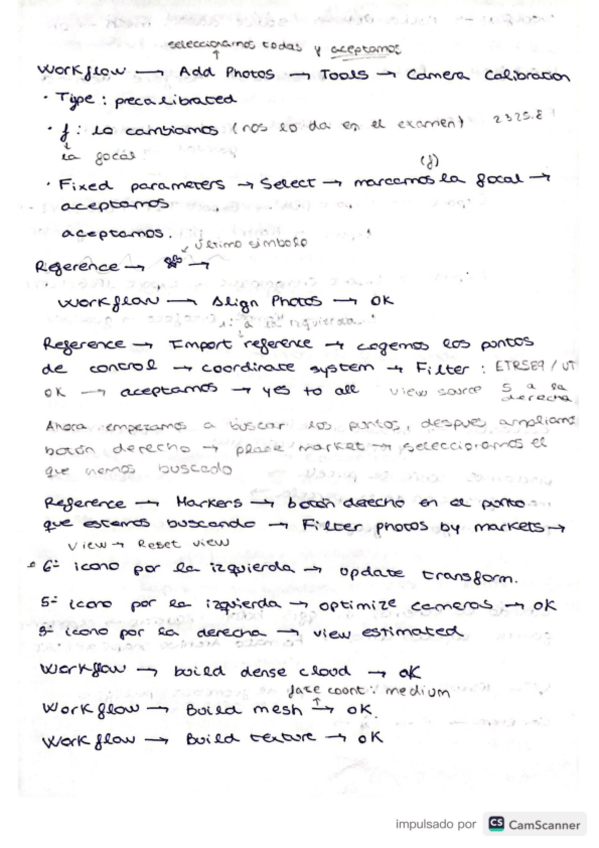 seleccionamos todas y aceptamos
Workflow → Add Photos → Tools → Camera Calibration
· Type: precalibrated
· f: la cambiamos (nos lo da en el examen) 2325.8
la focal
(f)
· Fixed parameters → Select → marcamos la focal →
aceptamos
aceptamos.
último símbolo
Reference → →
Workflow → Align Photos → OK
a la izquierda
Reference → Import reference → cogemos los puntos
de control → coordinate system → Filter: ETRS89 / UT
OK → aceptamos → yes to all view source 5 a la
derecha
Ahora empezamos a buscar los puntos, despues ampliamos
botón derecho → place market → seleccionamos el
que hemos buscado
Reference → Markers → botón derecho en el punto
que estamos buscando → Filter photos by markets →
View → Reset view
6º icono por la izquierda → update transform.
5º icono por la izquierda → optimize cameras → OK
5º icono por la derecha → view estimated
Workflow → build dense cloud → OK
face count: medium
Workflow → Build mesh → OK.
Workflow → Build texture → OK
impulsado por CS CamScanner